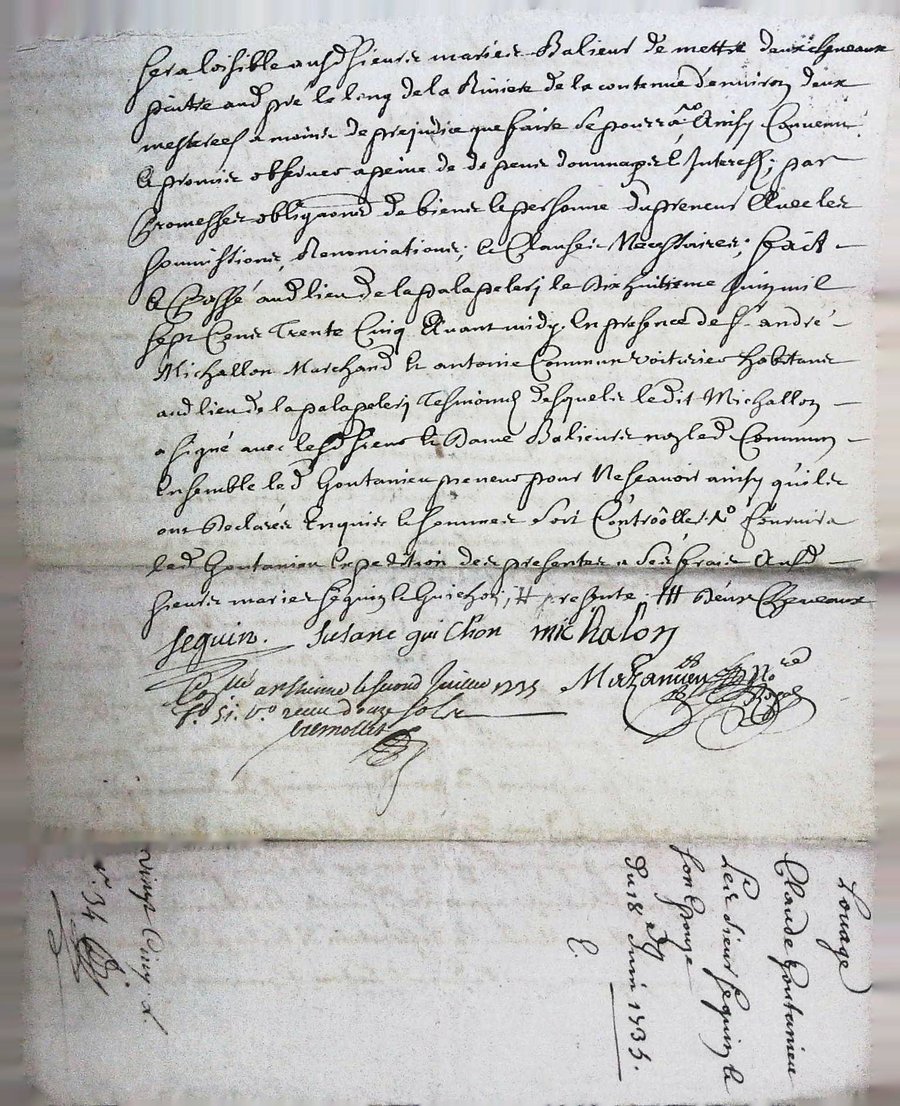 sera loisible ausd sieurs mariés Balieur de mettre deux chevaux
paitre aud pré le long de la Riviere de la contenue d'environ deux
mesterees a moins de prejudice que faire se pourra Ainsy Convenu
Et promis observer a peine de de peur dommages & Interess, par
Promesses obligaond de biens & personne du preneur Avec les
soumistions, Renonciations, & Clauses Necessaires, fait
& Passé aud lieu de la palapelerj le Dix huitieme Juin mil
sept Cens Trente Cinq Avant midy. En presence de sr andré
Michallon Marchand & antoine Commun voiturier habitans
aud lieu de la palapelerj Tesmoins desquels ledit Michallon
a signé avec lesd sieur & Dame Balieurs no led Commun
Ensemble led Goutanieu preneur pour Ne scavoir ainsy qu'ils
ont Declarés Enquis & sommes soit Contròòllé No fournira
led Goutanieu Expedition des presentes a ses frais Ausd
sieurs mariés Seguin & Guichon, # presente ### Deux Chevaux
Seguin. Susane guichon michalon
Collé a le second Juillet 1735 Mazanieu Nore
fo 51. vo receu douze sols
tremollet
Louage
Claude Goutanieu
Les sieur Seguin &
son Epouze
Du 18 Juin 1735.
E.
vingt Cinq.
n. 34